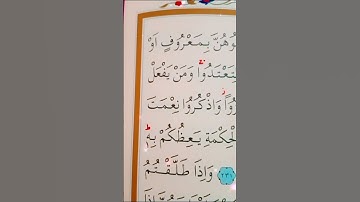 كُوهُنَّ بِمَعْرُوفٍ اَوْ
تَعْتَدُواۚ وَمَنْ يَفْعَلْ
وًاۘ وَاذْكُرُوا نِعْمَتَ
لْحِكْمَةِ يَعِظُكُمْ بِهِۜ
﴿٢٣١﴾ وَاِذَا طَلَّقْتُمُ